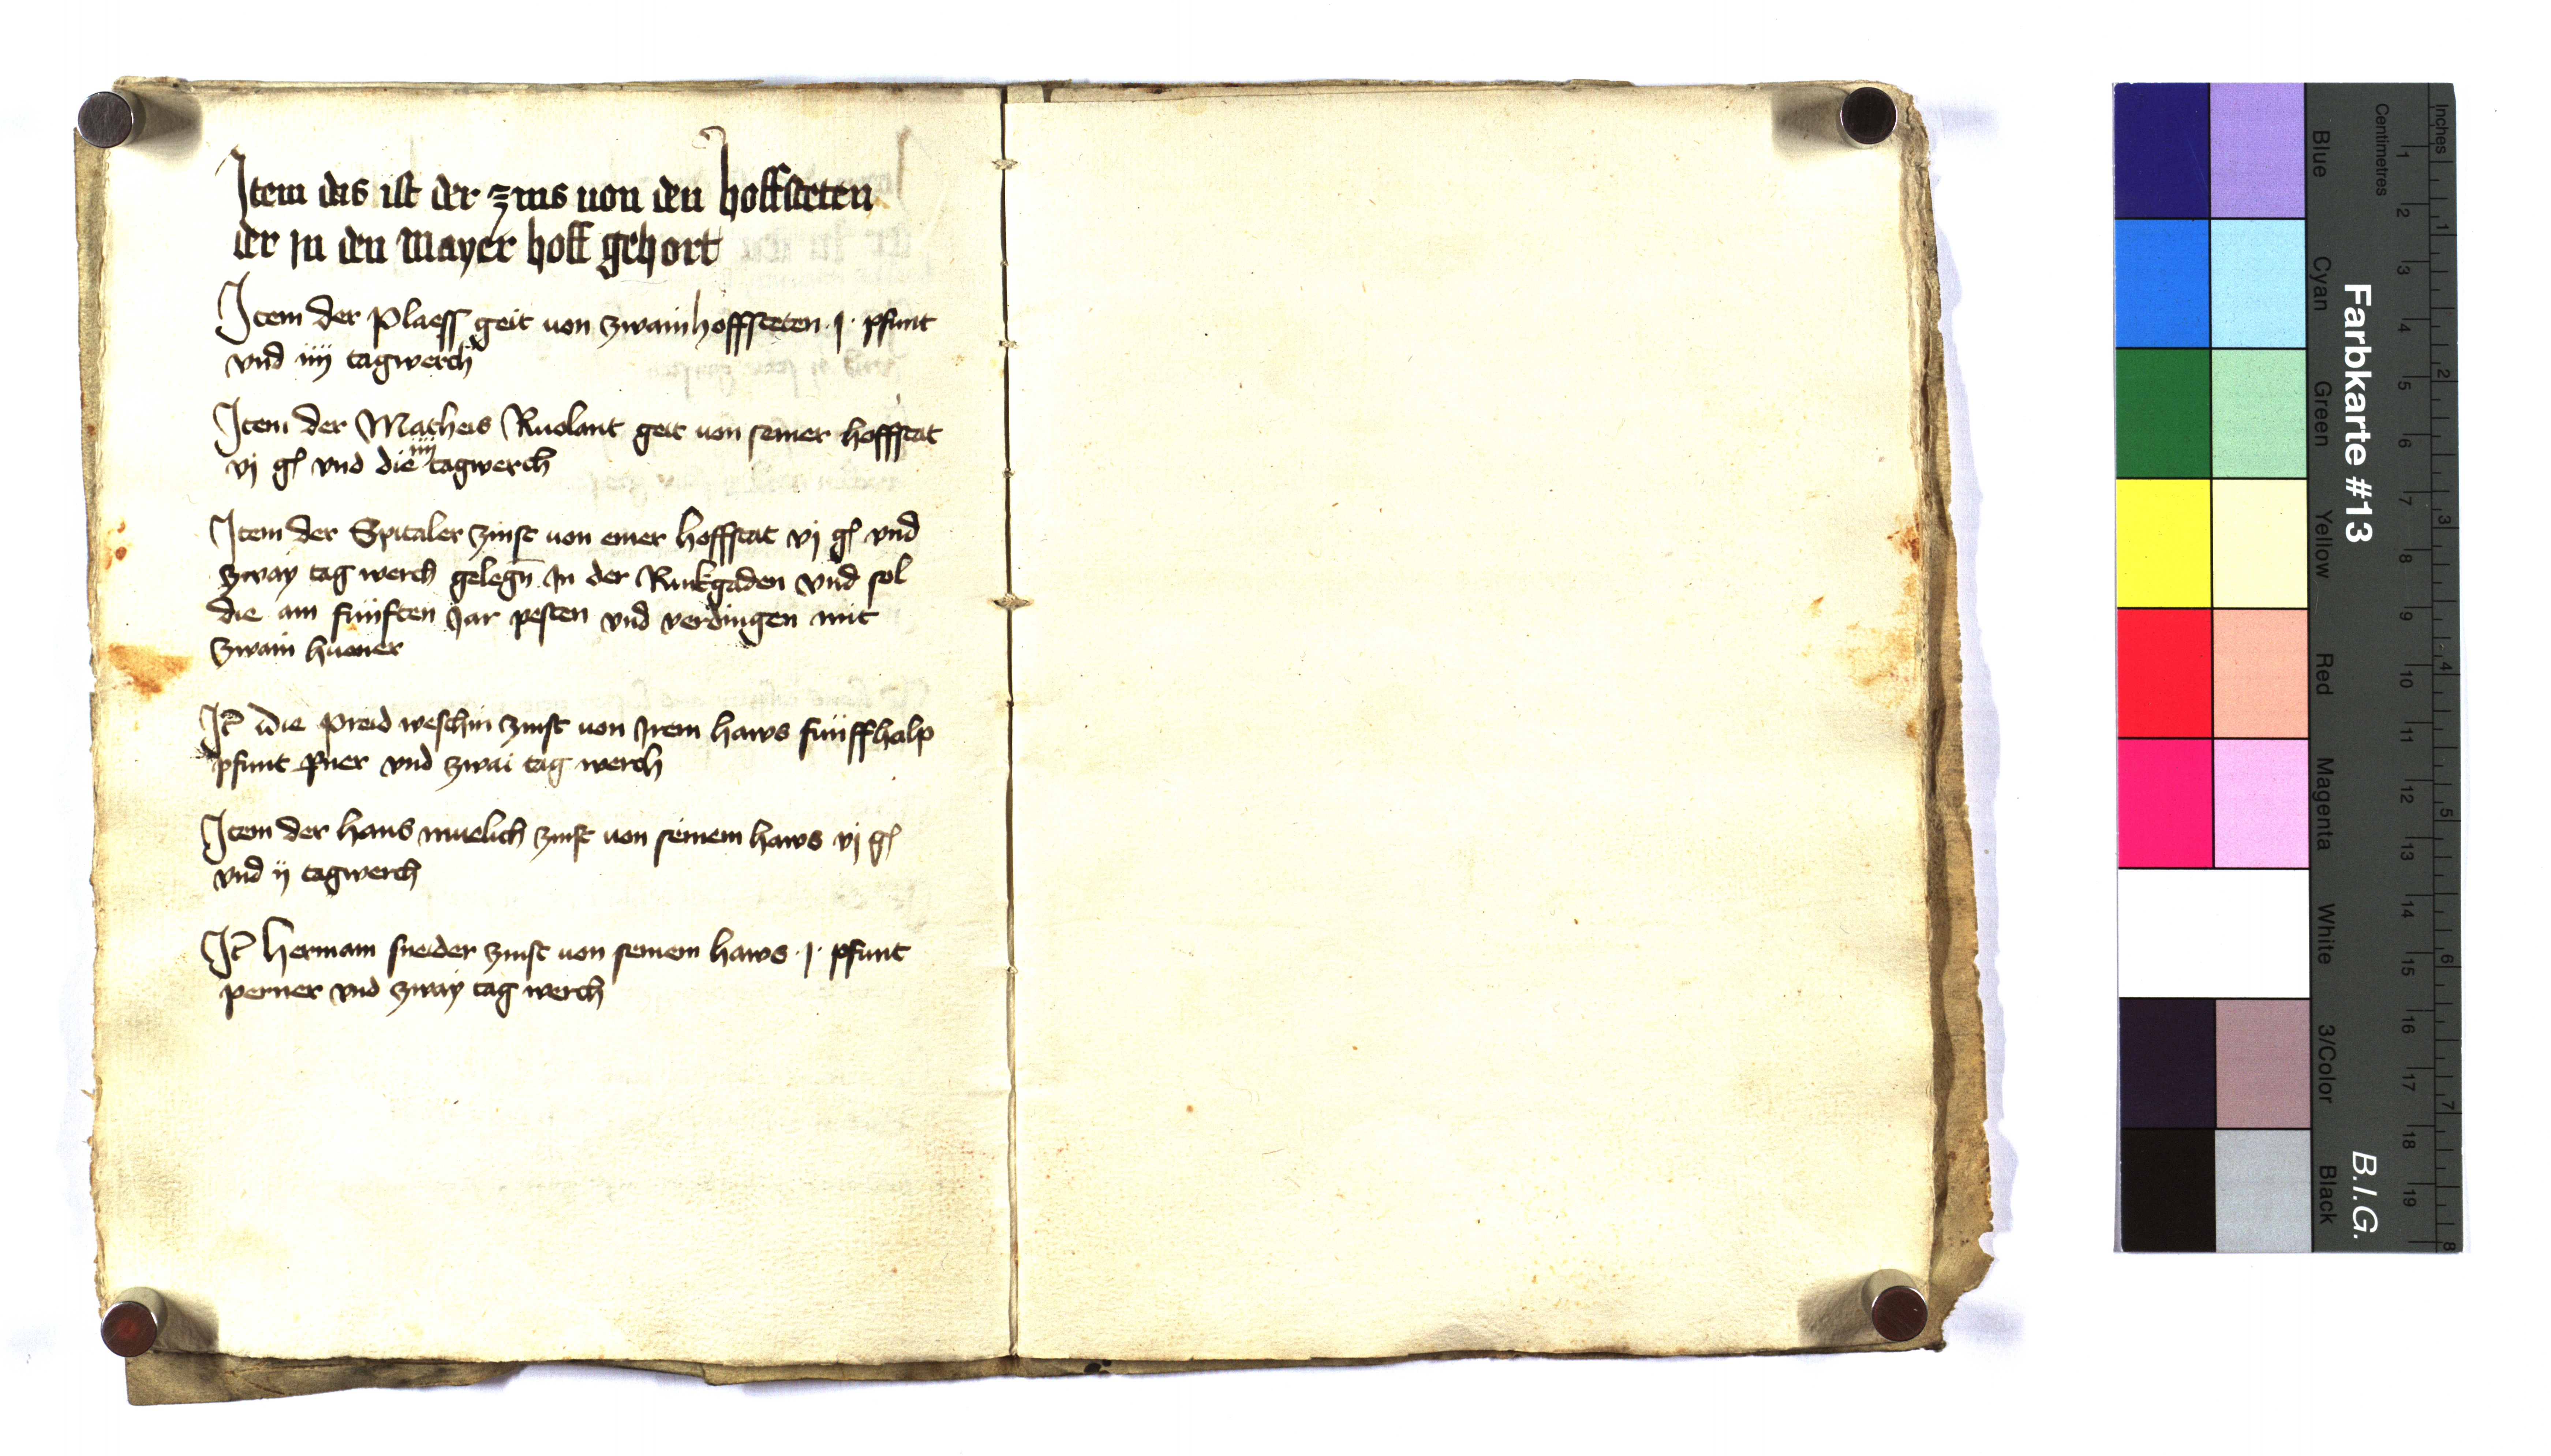 Item das ist der zins von den hoffsteten
der jn den mayer hoff gehort
Item der Plaess geit von zwain hoffsteten · j · pfunt
vnd iiij tagwerch
Item der Matheis Ruolant geit von seiner hoffstat
iiij
vj gl vnd die tagwerch
Item der Spitaler zinst von einer hoffstat vj gl vnd
zway tag werch gelegn̄ In der Runkgaden vnd sol
die am fünften Jar pesten vnd verdingen mit
zwain huener
It̄ die Preid weschin zinst von Irem haws fünffhalp
pfunt pner vnd zwai tag werch
Item der hans muelich zinst von seinem haws vj gl
vnd ij tagwerch
It̄ Herman sneider zinst von seinem haws · j · pfunt
perner vnd zway tag werch
Inches 1 2 3 4 5 6 7 8
Centimetres 1 2 3 4 5 6 7 8 9 10 11 12 13 14 15 16 17 18 19
Farbkarte #13 B.I.G.
Blue Cyan Green Yellow Red Magenta White 3/Color Black